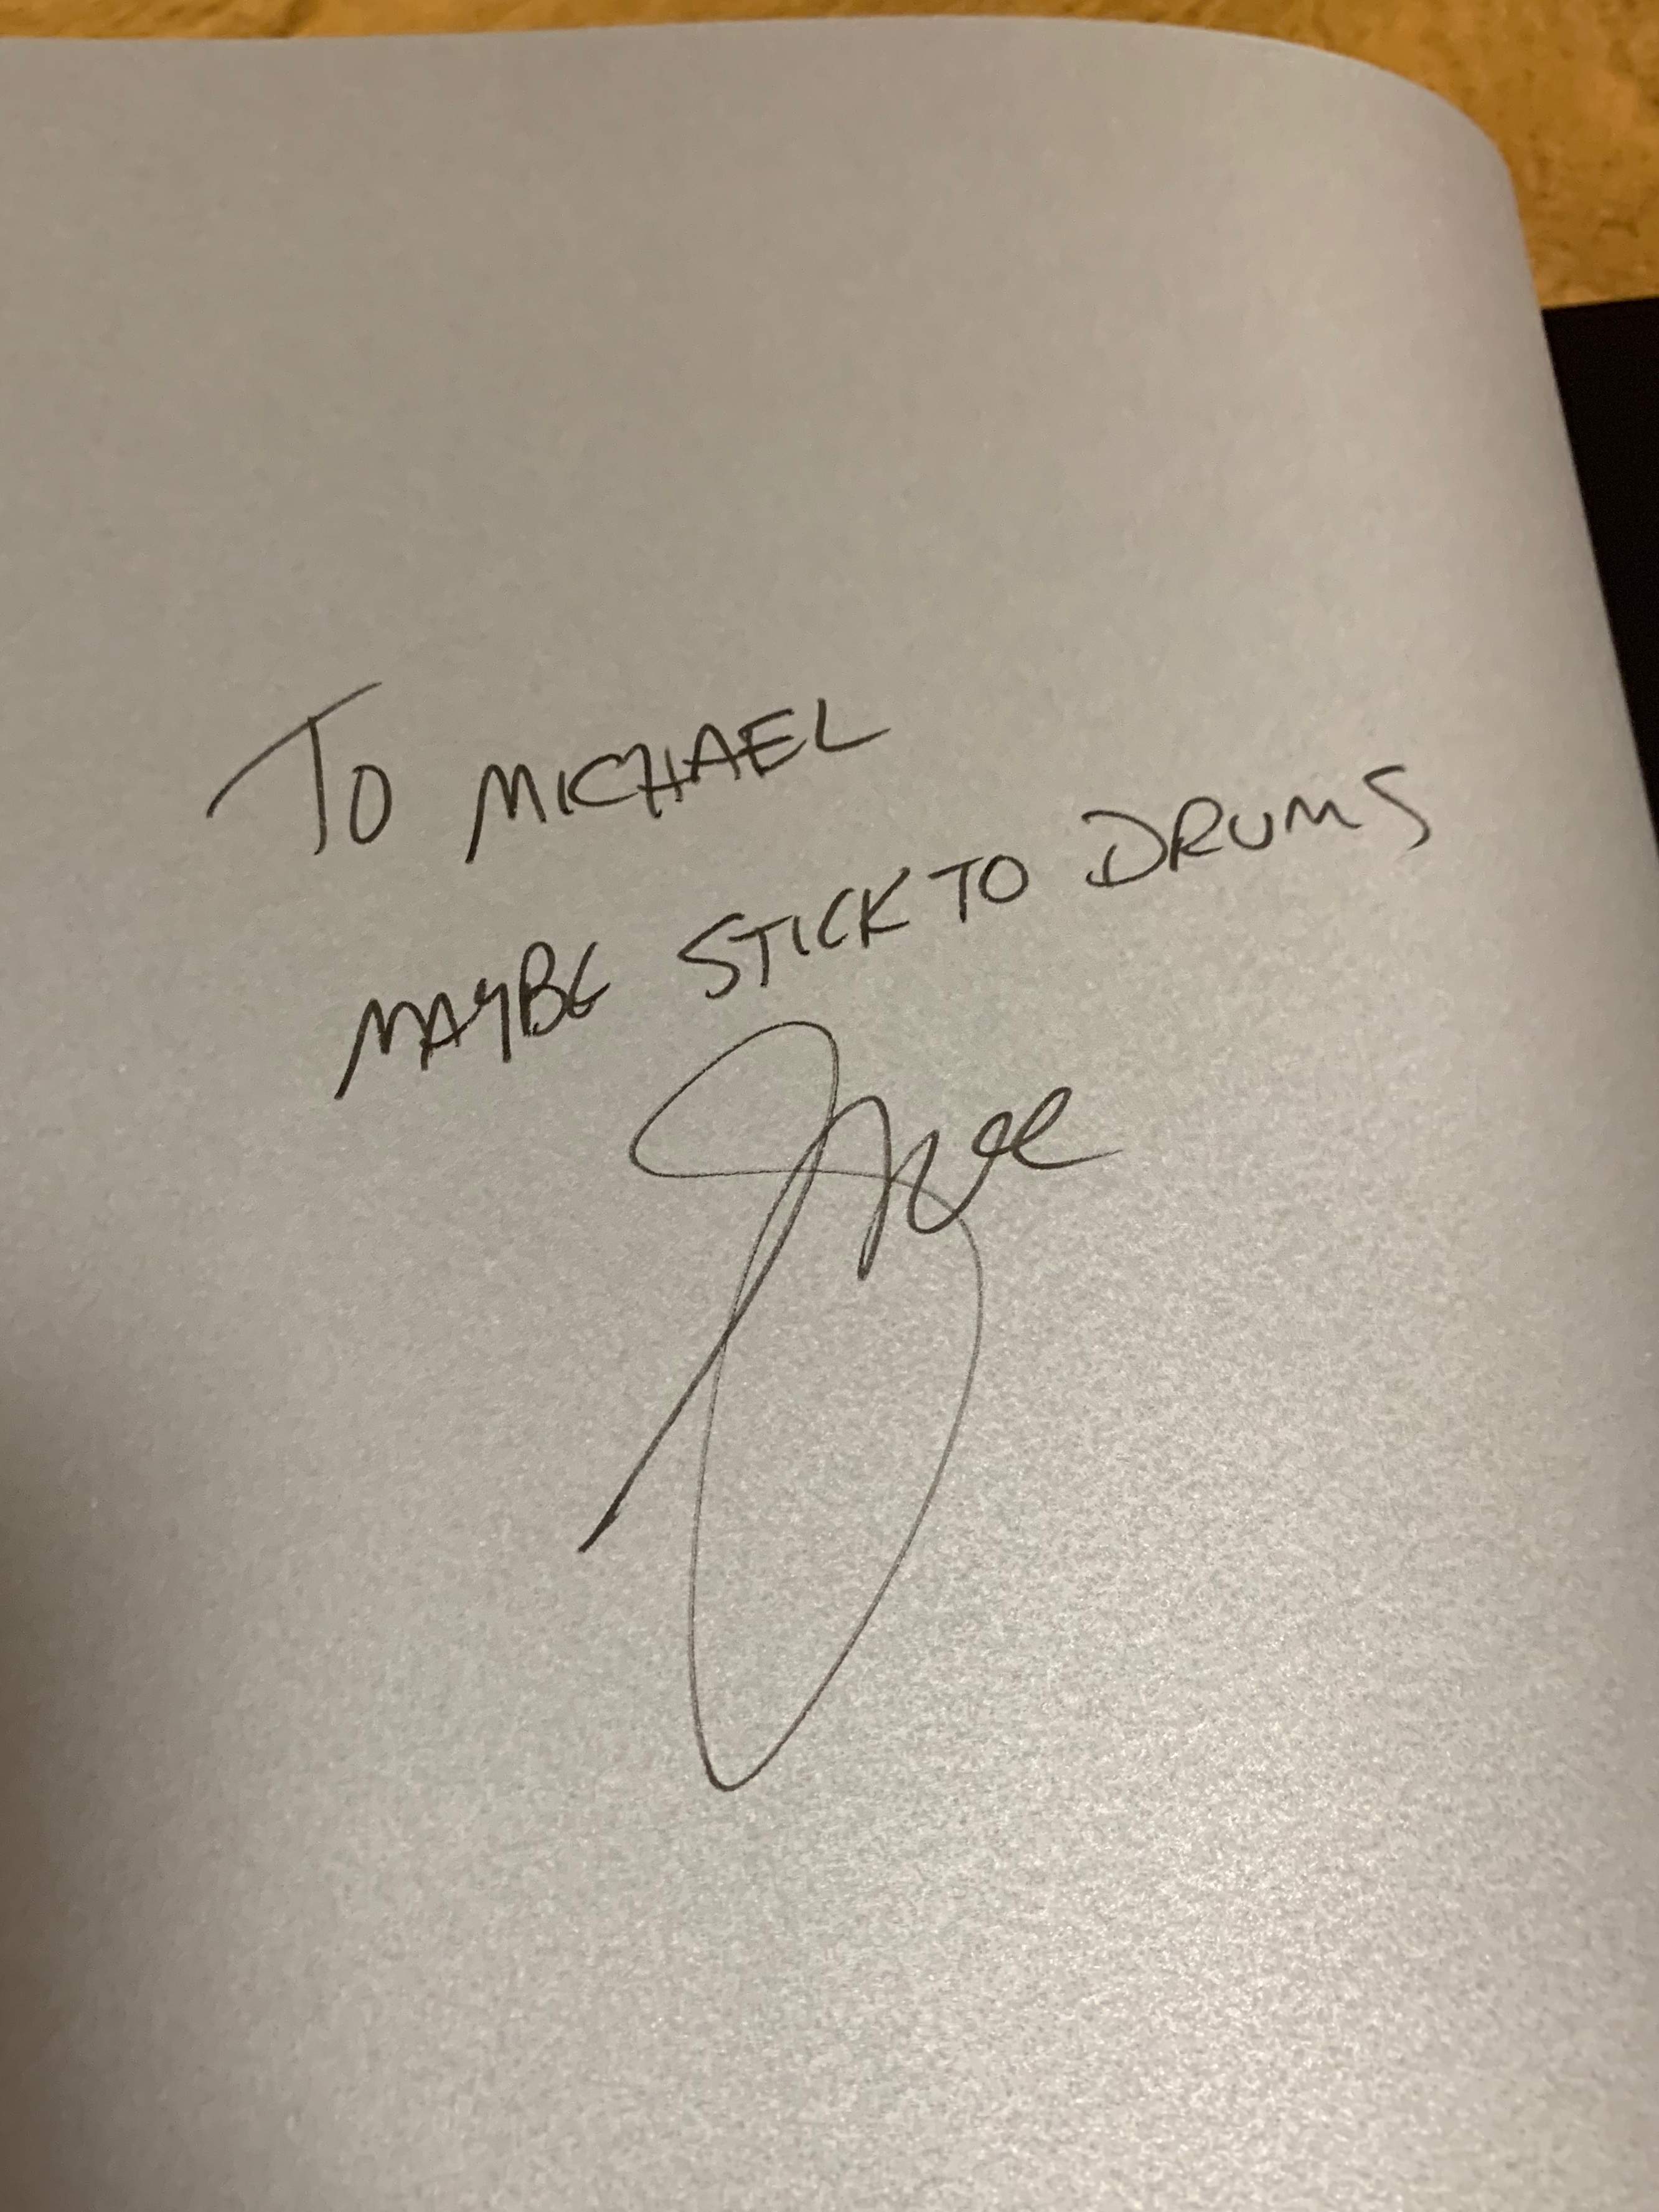 TO MICHAEL
MAYBE STICK TO DRUMS